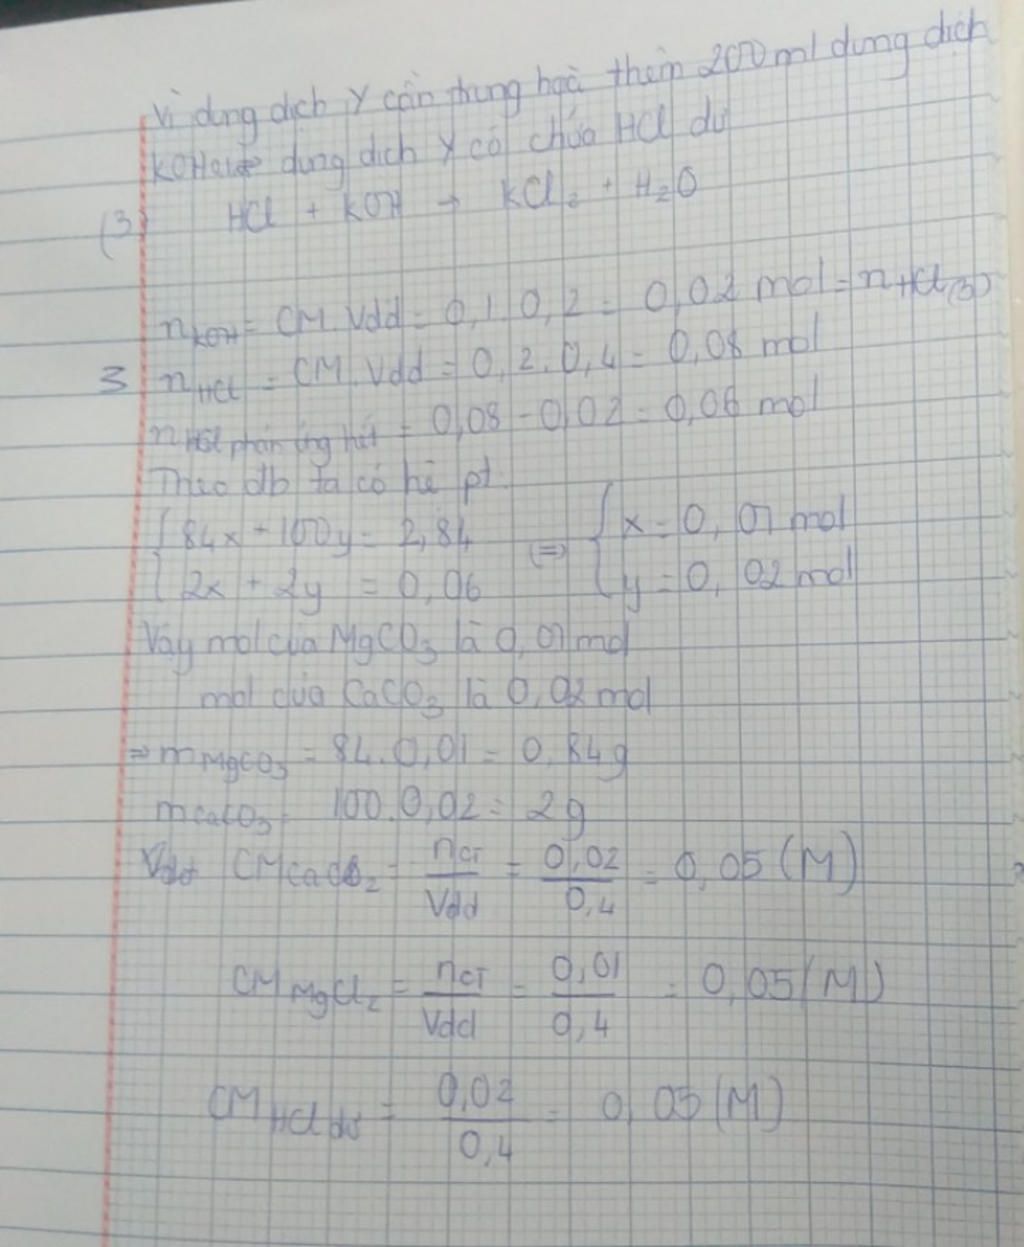 Vì dung dịch Y cần trung hoà thêm 200 ml dung dịch
KOH dung dịch Y có chứa HCl dư
(3) HCl + KOH → KCl₂ + H₂O
nKOH = CM.Vdd = 0,1.0,2 = 0,02 mol = nHCl(3)
3 nHCl = CM.Vdd = 0,2.0,4 = 0,08 mol
nHCl phản ứng hết = 0,08 - 0,02 = 0,06 mol
Theo đb ta có hệ pt
{ 84x + 100y = 2,84 (=) { x = 0,01 mol
{ 2x + 2y = 0,06 { y = 0,02 mol
Vậy mol của MgCO₃ là 0,01 mol
mol của CaCO₃ là 0,02 mol
⇒ mMgCO₃ = 84.0,01 = 0,84g
mCaCO₃ = 100.0,02 = 2g
Vdd CMCaCl₂ = nCT/Vdd = 0,02/0,4 = 0,05 (M)
CMMgCl₂ = nCT/Vdd = 0,01/0,4 = 0,05 (M)
CMHCl dư = 0,02/0,4 = 0,05 (M)